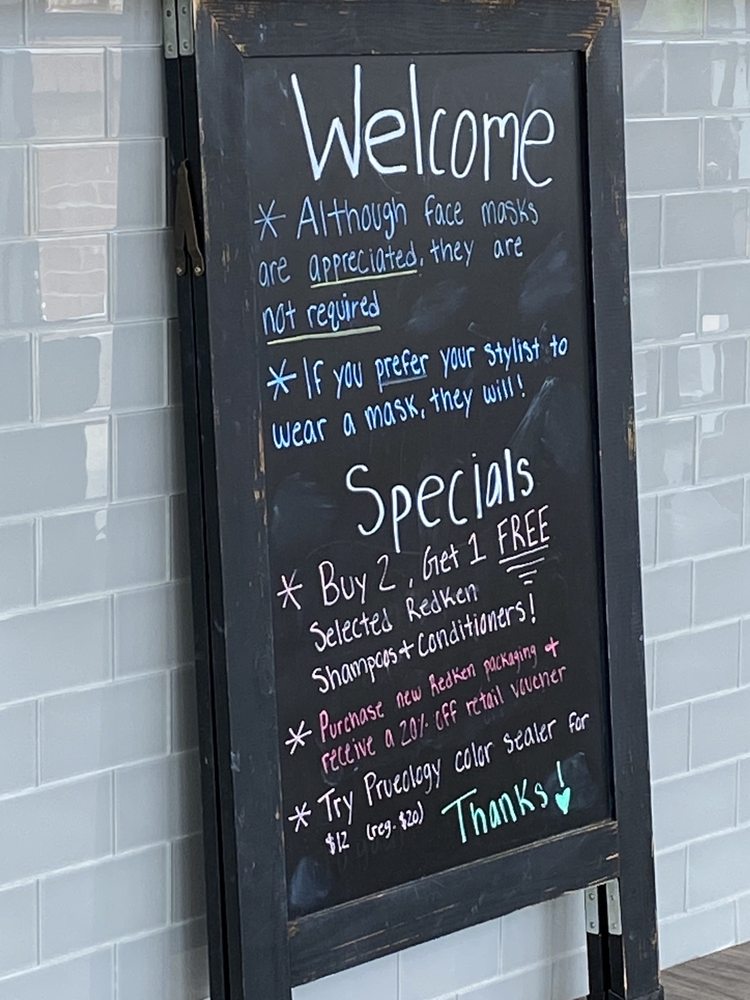 Welcome
* Although face masks
are appreciated, they are
not required
* If you prefer your stylist to
wear a mask, they will!
Specials
* Buy 2, Get 1 FREE
Selected Redken
Shampoos + Conditioners!
* Purchase new Redken packaging +
receive a 20% off retail voucher
* Try Prueology color sealer for
$12 (reg. $20) Thanks!